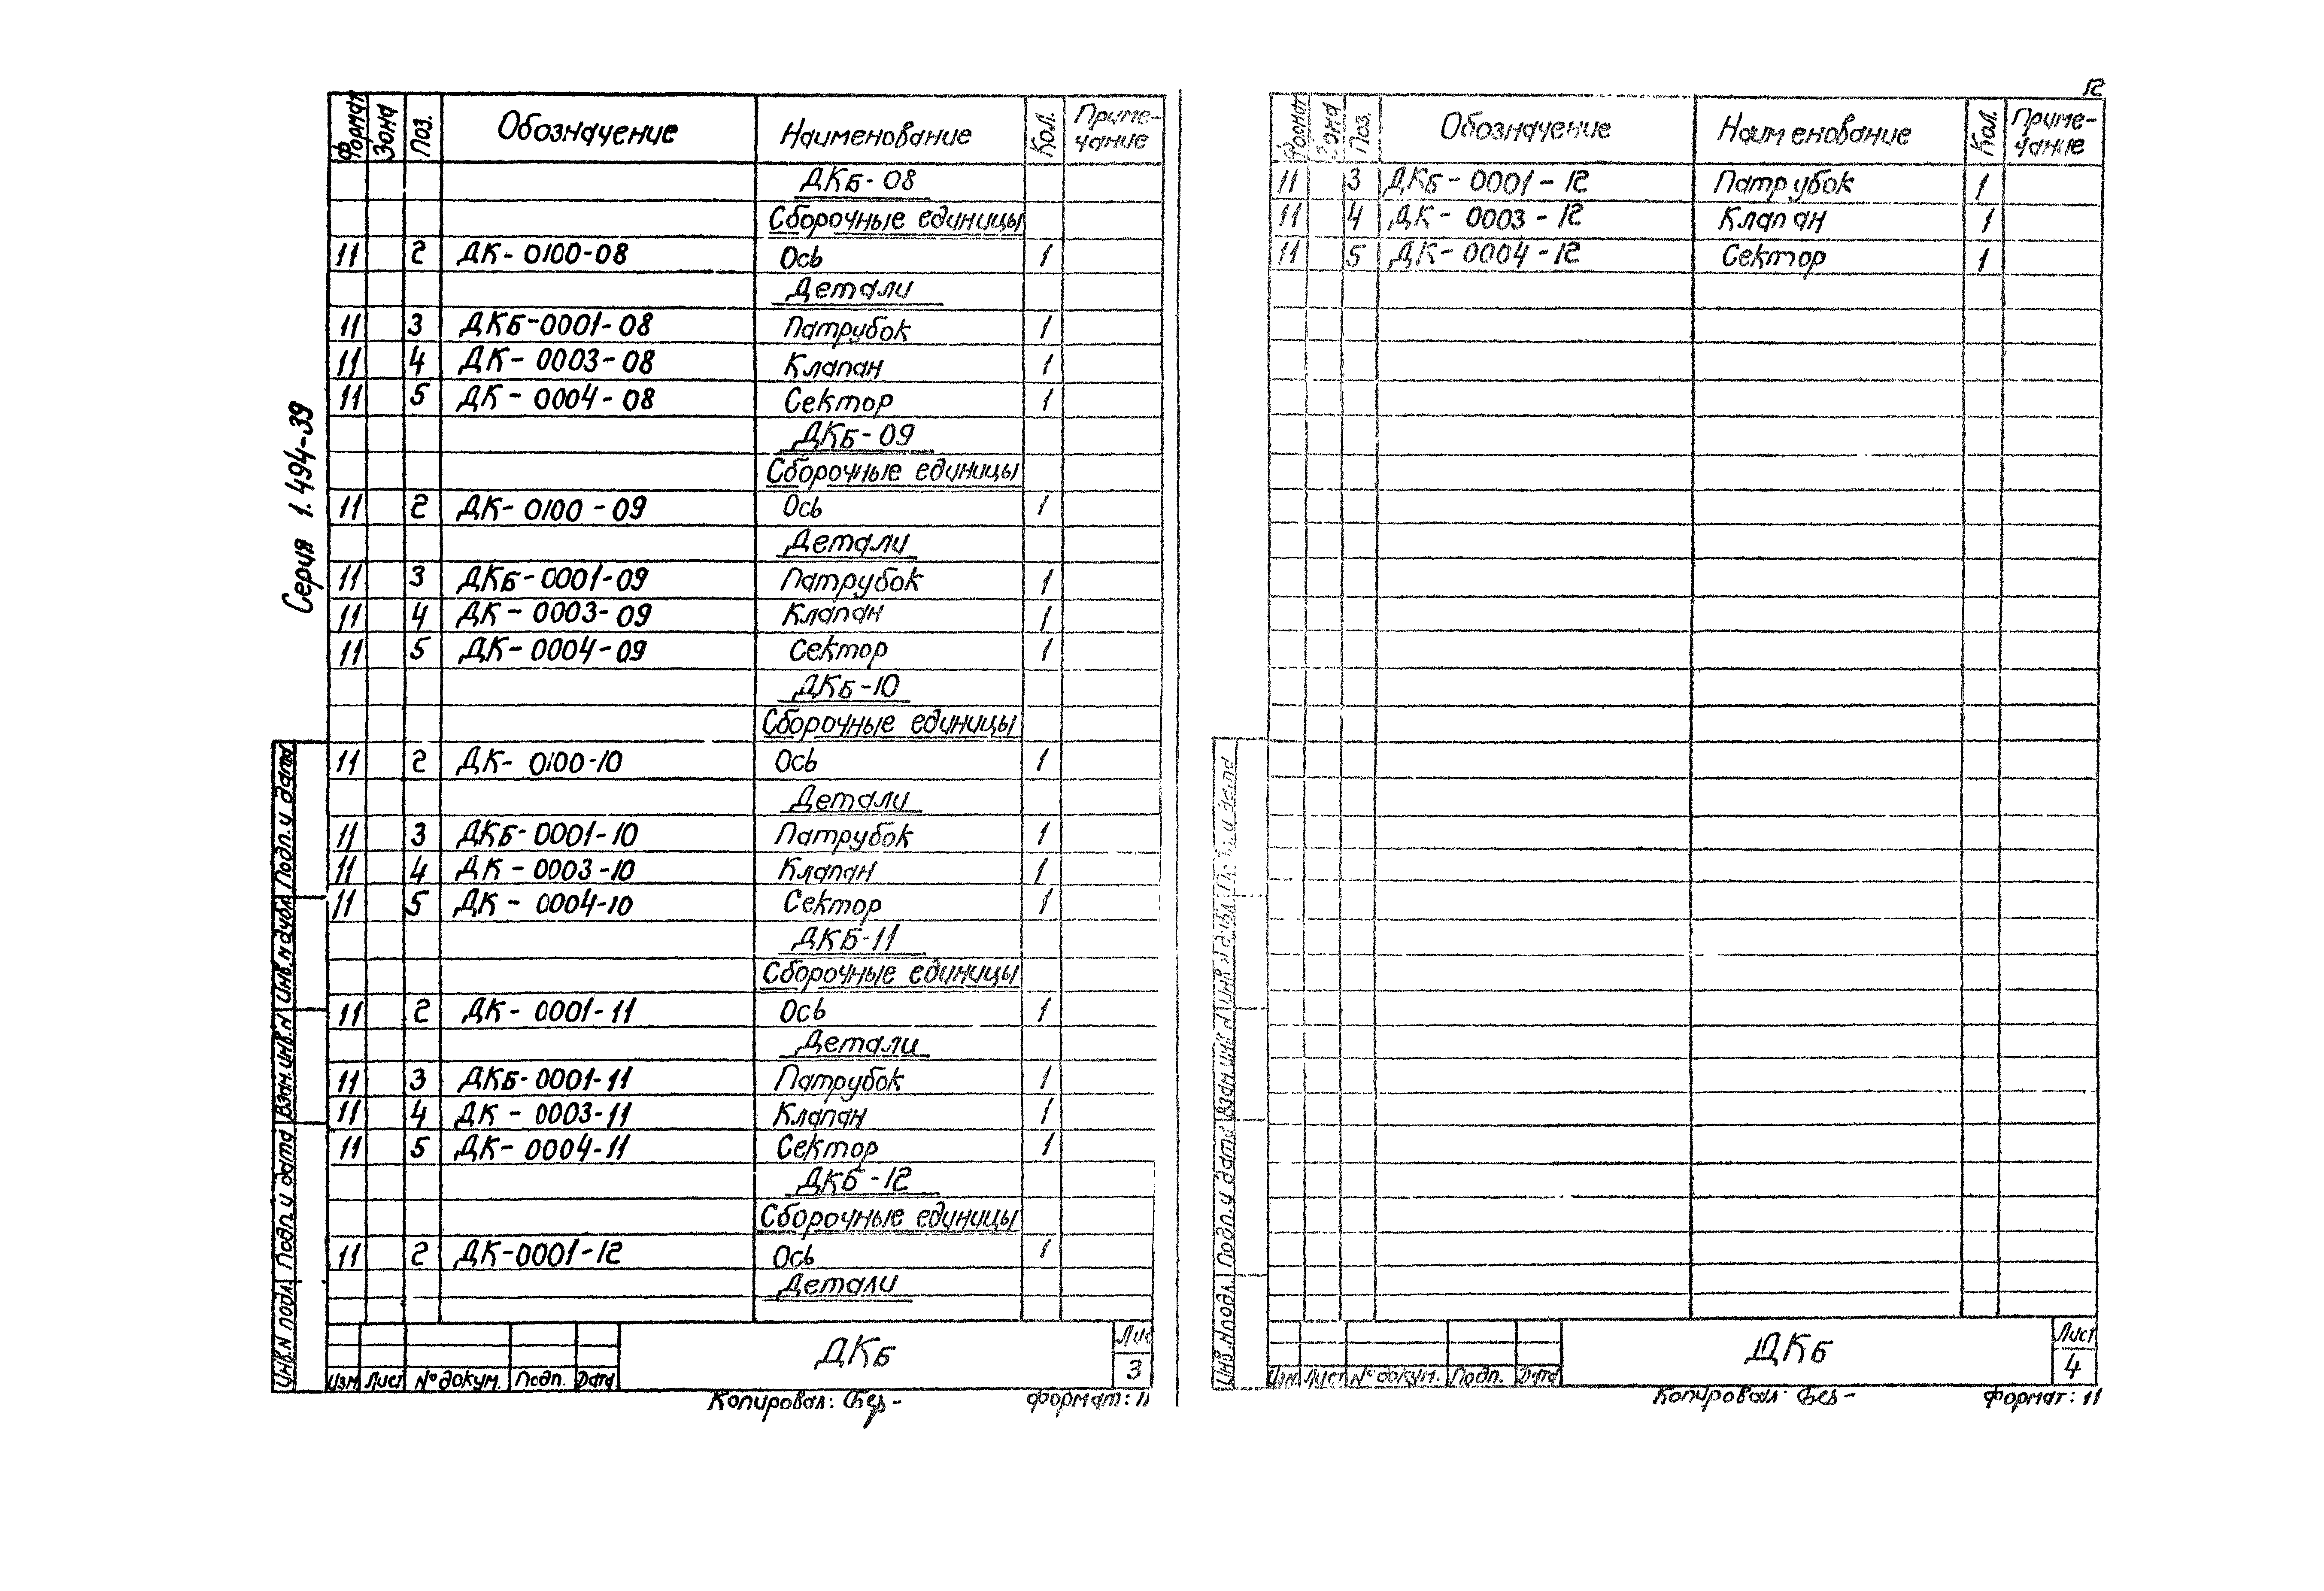 12
Серия 1.494-39
Формат Зона Поз. Обозначение Наименование Кол. Приме-
чание
ДКБ-08
Сборочные единицы
11 2 ДК-0100-08 Ось 1
Детали
11 3 ДКБ-0001-08 Патрубок 1
11 4 ДК-0003-08 Клапан 1
11 5 ДК-0004-08 Сектор 1
ДКБ-09
Сборочные единицы
11 2 ДК-0100-09 Ось 1
Детали
11 3 ДКБ-0001-09 Патрубок 1
11 4 ДК-0003-09 Клапан 1
11 5 ДК-0004-09 Сектор 1
ДКБ-10
Сборочные единицы
11 2 ДК-0100-10 Ось 1
Детали
11 3 ДКБ-0001-10 Патрубок 1
11 4 ДК-0003-10 Клапан 1
11 5 ДК-0004-10 Сектор 1
ДКБ-11
Сборочные единицы
11 2 ДК-0001-11 Ось 1
Детали
11 3 ДКБ-0001-11 Патрубок 1
11 4 ДК-0003-11 Клапан 1
11 5 ДК-0004-11 Сектор 1
ДКБ-12
Сборочные единицы
11 2 ДК-0001-12 Ось 1
Детали
Инв.N подл. Подп. и дата Взам.инв.N Инв.N дубл. Подп. и дата
Изм Лист № докум. Подп. Дата
ДКБ
Лис
3
Копировал:
Формат: 11
Формат Зона Поз. Обозначение Наименование Кол. Приме-
чание
11 3 ДКБ-0001-12 Патрубок 1
11 4 ДК-0003-12 Клапан 1
11 5 ДК-0004-12 Сектор 1
Инв.N подл. Подп. и дата Взам.инв.N Инв.N дубл. Подп. и дата
Изм Лист № докум. Подп. Дата
ДКБ
Лист
4
Копировал:
Формат: 11